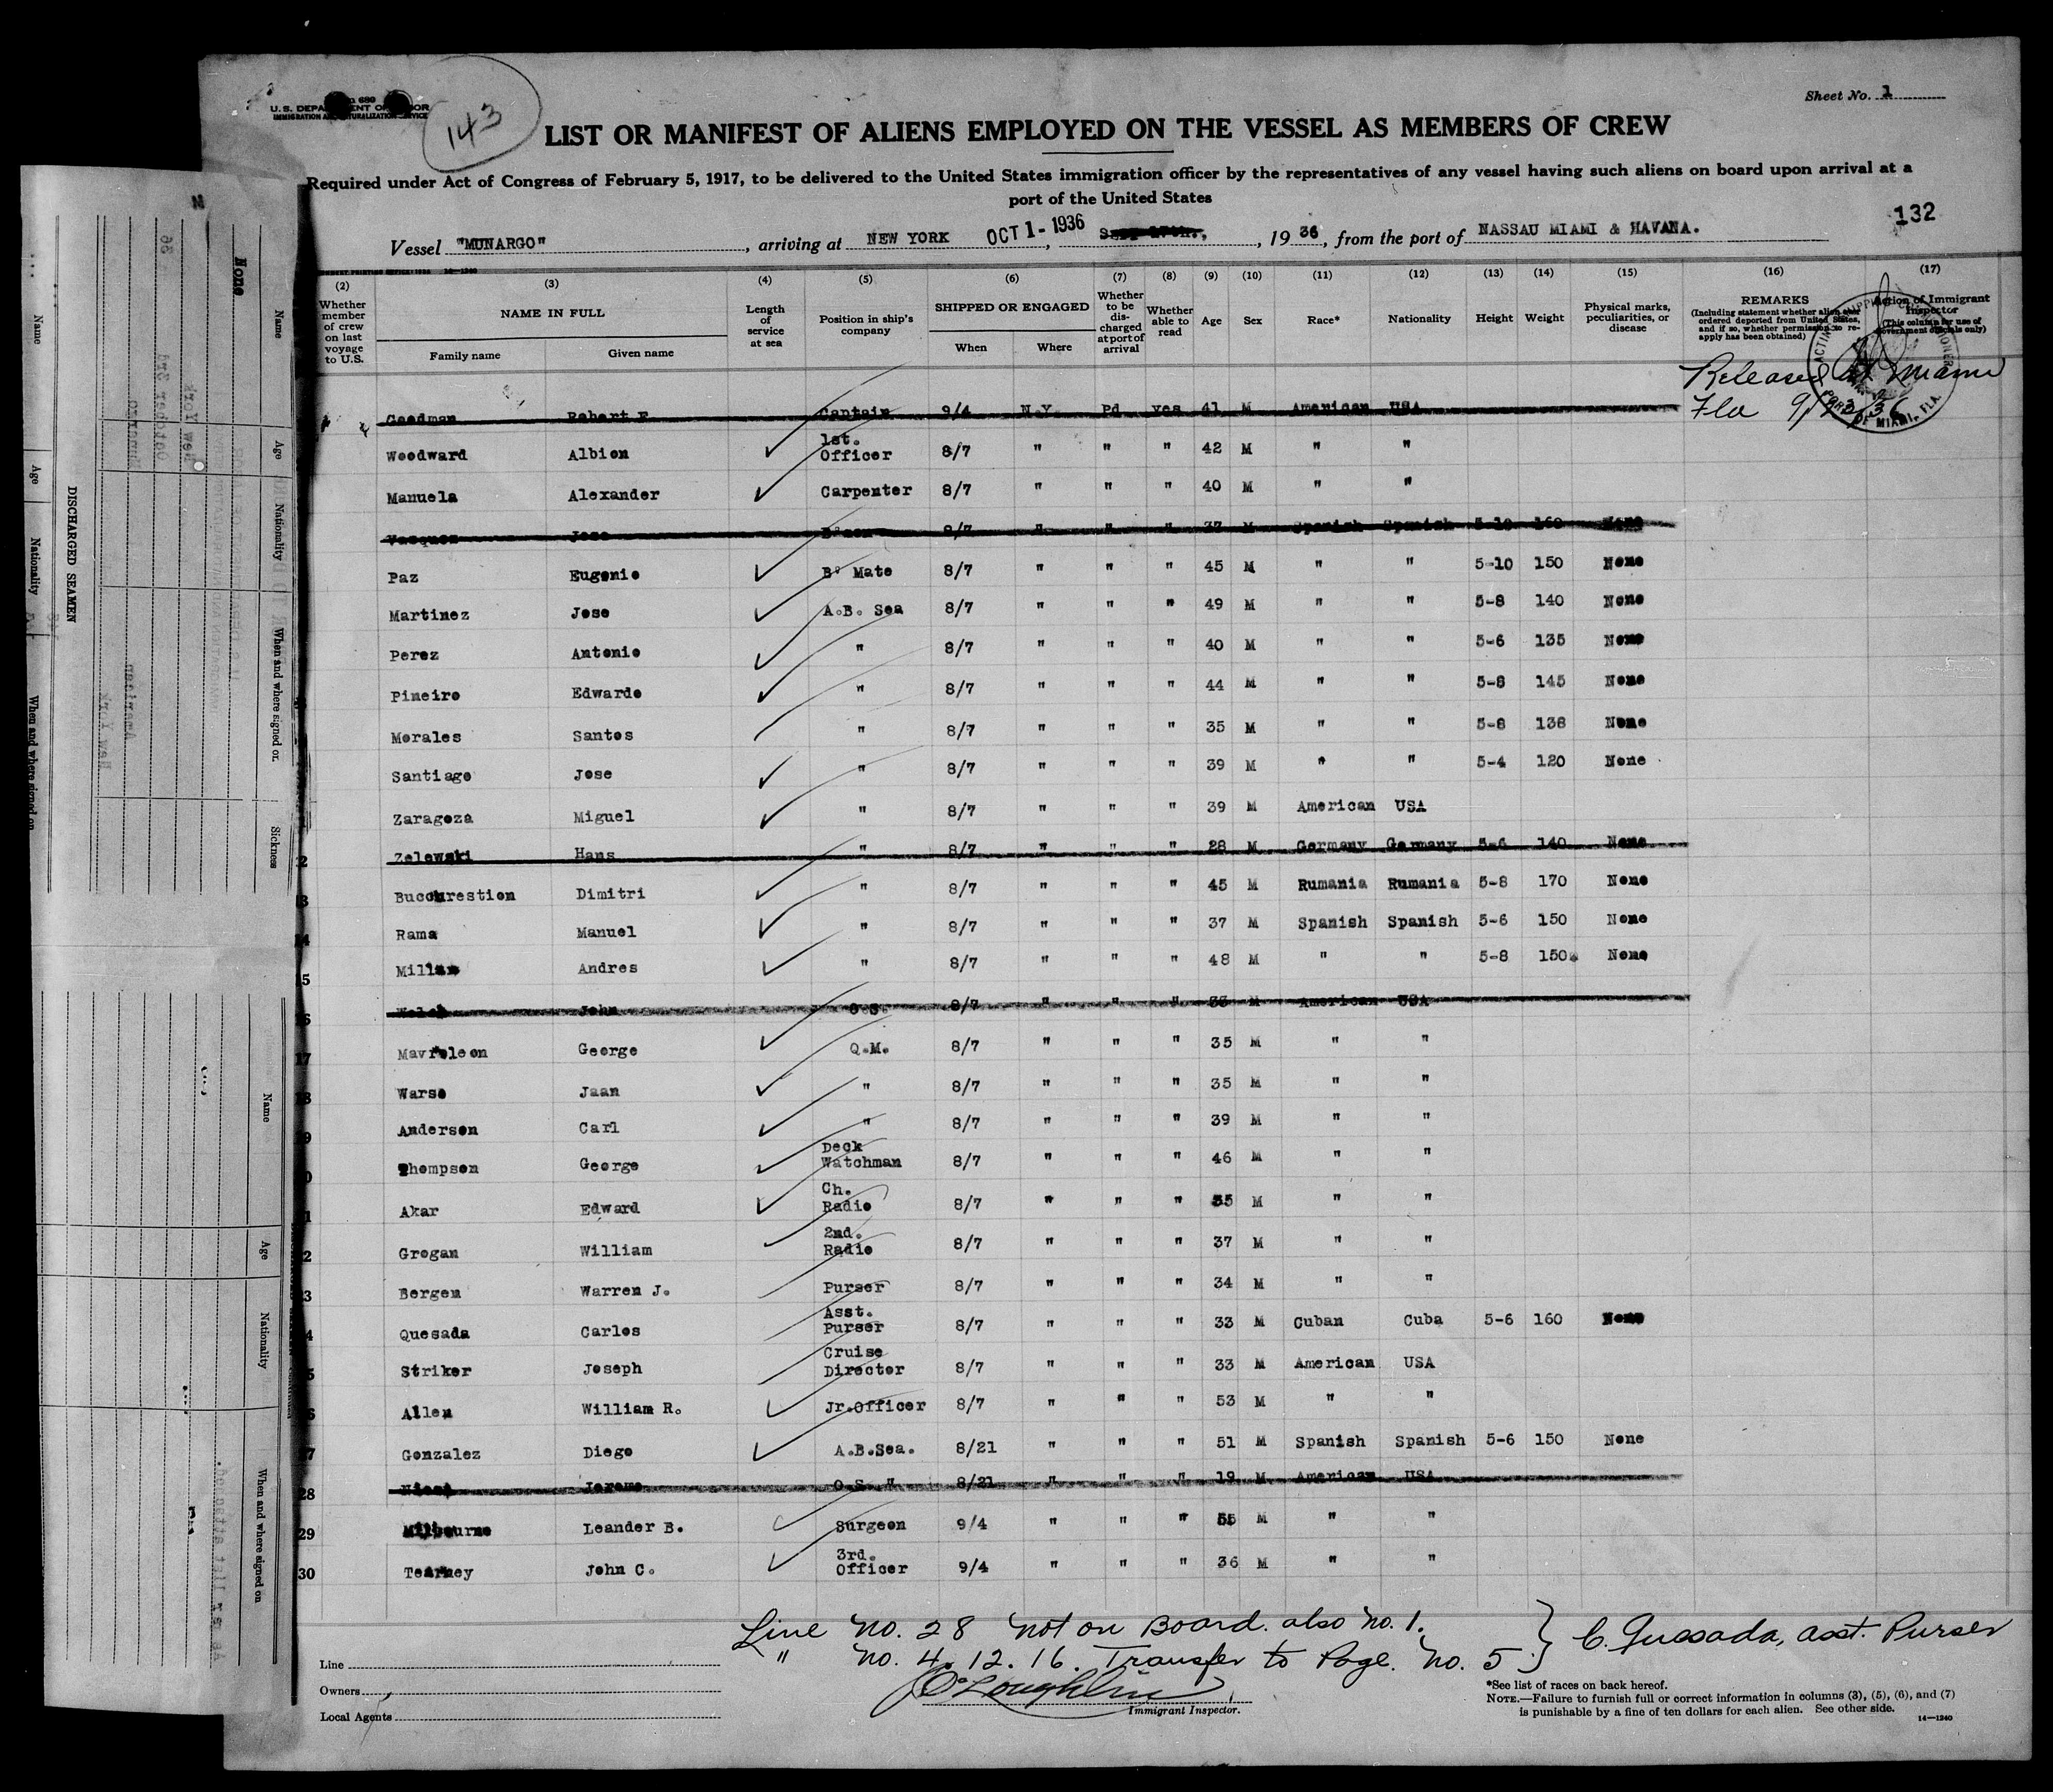 Sheet No. 1
143
LIST OR MANIFEST OF ALIENS EMPLOYED ON THE VESSEL AS MEMBERS OF CREW
Required under Act of Congress of February 5, 1917, to be delivered to the United States immigration officer by the representatives of any vessel having such aliens on board upon arrival at a
port of the United States
132
Vessel "MUNARGO", arriving at NEW YORK OCT 1- 1936, 1936, from the port of NASSAU MIAMI & HAVANA.
(2) (3) (4) (5) (6) (7) (8) (9) (10) (11) (12) (13) (14) (15) (16) (17)
Whether member of crew on last voyage to U.S.
NAME IN FULL
Family name Given name
Length of service at sea
Position in ship's company
SHIPPED OR ENGAGED
When Where
Whether to be discharged at port of arrival
Whether able to read
Age Sex Race* Nationality Height Weight
Physical marks, peculiarities, or disease
REMARKS
(Including statement whether alien ever ordered deported from United States, and if so, whether permission to reapply has been obtained)
Action of Immigrant Inspector
(This column for use of Government officials only)
Released at Miami
Fla
Goodman Robert F Captain 9/4 N.Y. Pd yes 41 M American USA
Woodward Albion 1st. Officer 8/7 " " " 42 M " "
Manuela Alexander Carpenter 8/7 " " " 40 M " "
Vazquez Jose 8/7 " " " 37 M Spanish Spanish 5-10 160 None
Paz Eugenio Bs Mate 8/7 " " " 45 M " " 5-10 150 None
Martinez Jose A.B. Sea 8/7 " " " 49 M " " 5-8 140 None
Perez Antonio " 8/7 " " " 40 M " " 5-6 135 None
Pineiro Edwardo " 8/7 " " " 44 M " " 5-8 145 None
Morales Santos " 8/7 " " " 35 M " " 5-8 138 None
Santiago Jose " 8/7 " " " 39 M " " 5-4 120 None
Zaragoza Miguel " 8/7 " " " 39 M American USA
Zelewski Hans " 8/7 " " " 28 M Germany Germany 5-6 140 None
Bucurestion Dimitri " 8/7 " " " 45 M Rumania Rumania 5-8 170 None
Rama Manuel " 8/7 " " " 37 M Spanish Spanish 5-6 150 None
Andres " 8/7 " " " 48 M " " 5-8 150 None
Welch John O.S. 8/7 " " " 33 M American USA
Mavroleon George Q.M. 8/7 " " " 35 M " "
Warso Jaan " 8/7 " " " 35 M " "
Anderson Carl " 8/7 " " " 39 M " "
Thompson George Deck Watchman 8/7 " " " 46 M " "
Akar Edward Ch. Radio 8/7 " " " M " "
Grogan William 2nd. Radio 8/7 " " " 37 M " "
Bergen Warren J. Purser 8/7 " " " 34 M " "
Quesada Carlos Asst. Purser 8/7 " " " 33 M Cuban Cuba 5-6 160 None
Striker Joseph Cruise Director 8/7 " " " 33 M American USA
Allen William R. Jr.Officer 8/7 " " " 53 M " "
Gonzalez Diego A.B.Sea. 8/21 " " " 51 M Spanish Spanish 5-6 150 None
28 Jerome O.S. " 8/21 " " " 19 M American USA
29 Milbourne Leander B. Surgeon 9/4 " " " 55 M " "
30 Tearney John C. 3rd. Officer 9/4 " " " 36 M " "
Line No. 28 not on Board. also No. 1.
" No. 4. 12. 16. Transfer to Page. No. 5 } C. Quesada, asst. Purser
O'Loughlin
Immigrant Inspector.
Line
Owners
Local Agents
*See list of races on back hereof.
NOTE.—Failure to furnish full or correct information in columns (3), (5), (6), and (7)
is punishable by a fine of ten dollars for each alien. See other side.
14—1240
DISCHARGED SEAMEN
Name Age Nationality When and where signed on
Name Age Nationality When and where signed on Sickness
None
Name Age Nationality When and where signed on